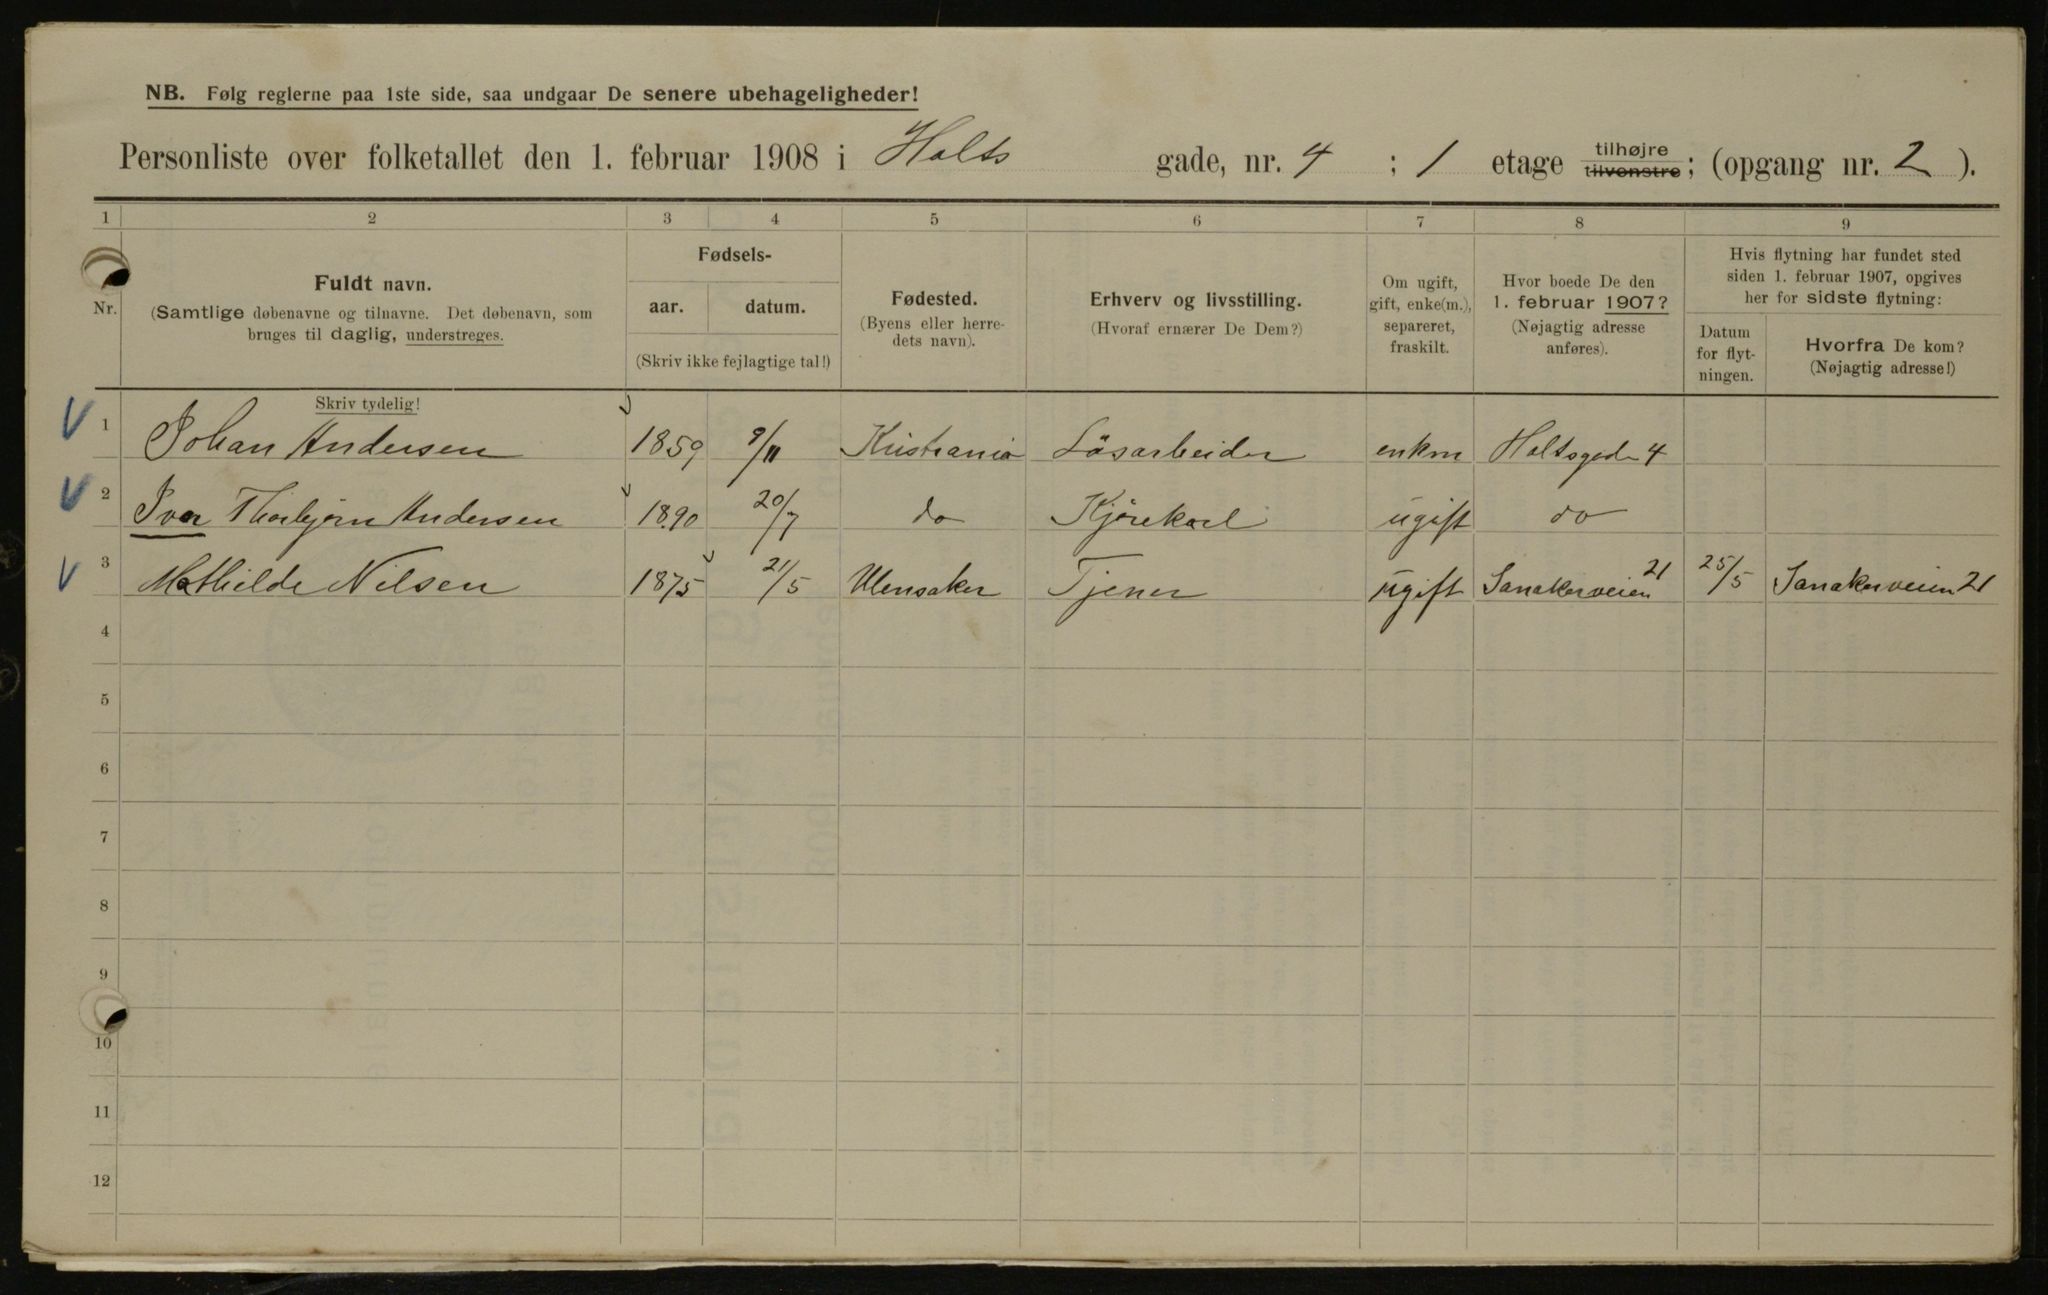 NB. Følg reglerne paa 1ste side, saa undgaar De senere ubehageligheder!
Personliste over folketallet den 1. februar 1908 i Holts gade, nr. 4 ; 1 etage tilhøjre tilvenstre; (opgang nr. 2 ).
1 2 3 4 5 6 7 8 9
Nr.
Fuldt navn.
(Samtlige døbenavne og tilnavne. Det døbenavn, som
bruges til daglig, understreges.
Fødsels-
aar. datum.
(Skriv ikke fejlagtige tal!)
Fødested.
(Byens eller herre-
dets navn).
Erhverv og livsstilling.
(Hvoraf ernærer De Dem?)
Om ugift,
gift, enke(m.),
separeret,
fraskilt.
Hvor boede De den
1. februar 1907?
(Nøjagtig adresse
anføres).
Hvis flytning har fundet sted
siden 1. februar 1907, opgives
her for sidste flytning:
Datum
for flyt-
ningen.
Hvorfra De kom?
(Nøjagtig adresse!)
Skriv tydelig!
1 Johan Andersen 1859 9/11 Kristiania Løsarbeider enkm Holtsgade 4
2 Ivar Thorbjørn Andersen 1890 20/7 do Kjørekarl ugift do
3 Mathilde Nilsen 1875 21/5 Ulensaker Tjener ugift Sanakerveien 21 25/5 Sanakerveien 21
4
5
6
7
8
9
10
11
12